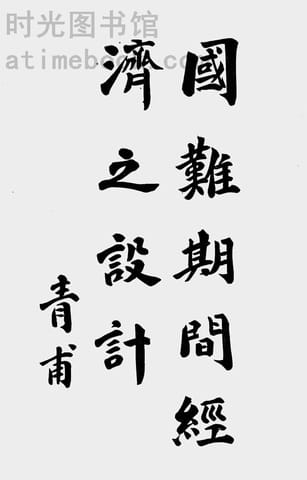 时光图书馆
atimebook.com
國難期間經
濟之設計
青甫